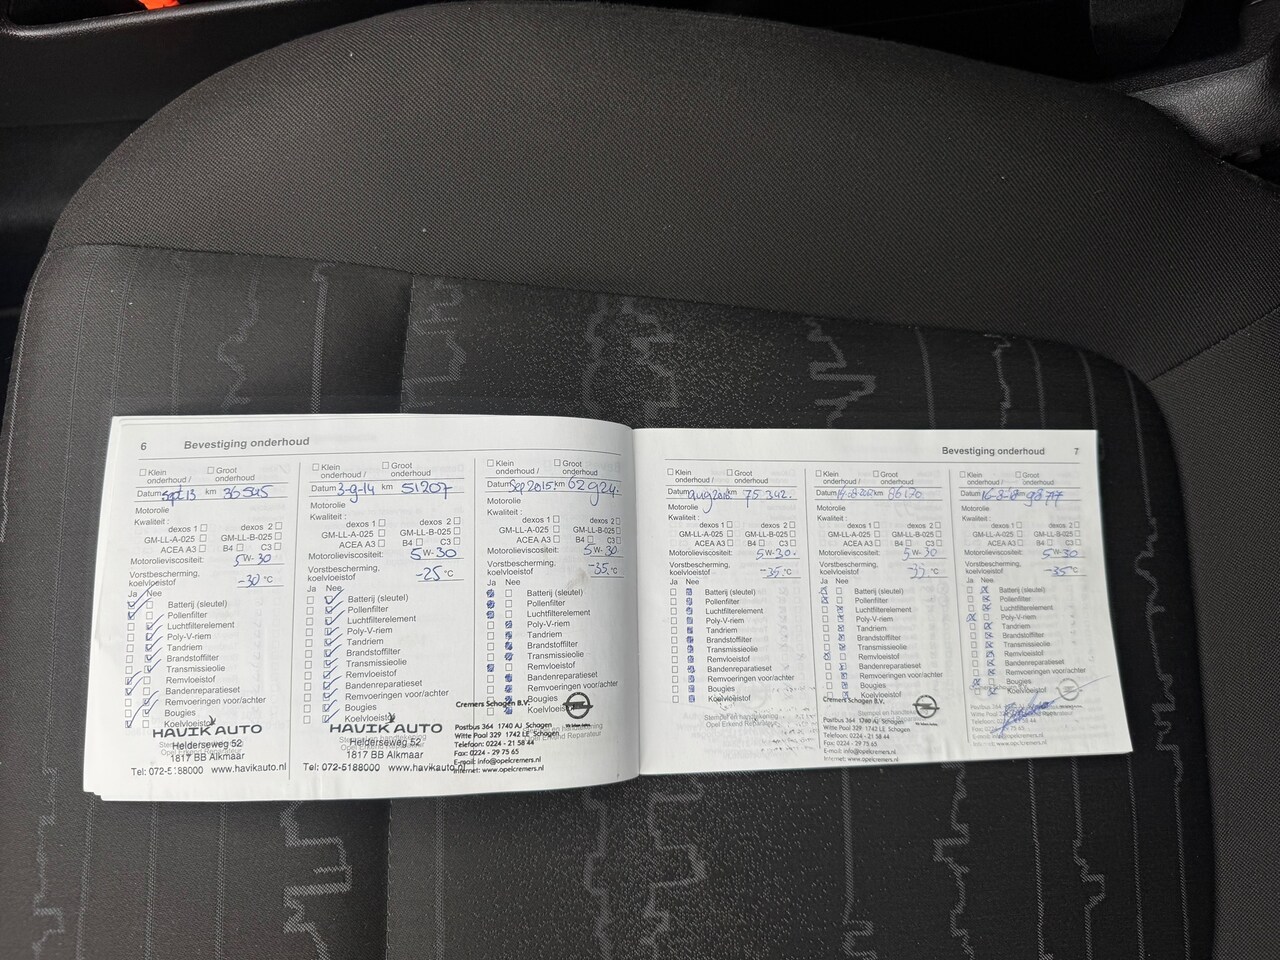 6 Bevestiging onderhoud
Klein onderhoud / Groot onderhoud
Datum sept 13 km 36545
Motorolie
Kwaliteit :
dexos 1 dexos 2
GM-LL-A-025 GM-LL-B-025
ACEA A3 B4 C3
Motorolieviscositeit: 5W-30
Vorstbescherming, koelvloeistof -30 °C
Ja Nee
Batterij (sleutel)
Pollenfilter
Luchtfilterelement
Poly-V-riem
Tandriem
Brandstoffilter
Transmissieolie
Remvloeistof
Bandenreparatieset
Remvoeringen voor/achter
Bougies
Koelvloeistof
HAVIK AUTO
Helderseweg 52
1817 BB Alkmaar
Tel: 072-5188000 www.havikauto.nl
Klein onderhoud / Groot onderhoud
Datum 3-9-14 km 51207
Motorolie
Kwaliteit :
dexos 1 dexos 2
GM-LL-A-025 GM-LL-B-025
ACEA A3 B4 C3
Motorolieviscositeit: 5W-30
Vorstbescherming, koelvloeistof -25 °C
Ja Nee
Batterij (sleutel)
Pollenfilter
Luchtfilterelement
Poly-V-riem
Tandriem
Brandstoffilter
Transmissieolie
Remvloeistof
Bandenreparatieset
Remvoeringen voor/achter
Bougies
Koelvloeistof
HAVIK AUTO
Helderseweg 52
1817 BB Alkmaar
Tel: 072-5188000 www.havikauto.nl
Klein onderhoud / Groot onderhoud
Datum Sep 2015 km 62924.
Motorolie
Kwaliteit :
dexos 1 dexos 2
GM-LL-A-025 GM-LL-B-025
ACEA A3 B4 C3
Motorolieviscositeit: 5W-30
Vorstbescherming, koelvloeistof -35 °C
Ja Nee
Batterij (sleutel)
Pollenfilter
Luchtfilterelement
Poly-V-riem
Tandriem
Brandstoffilter
Transmissieolie
Remvloeistof
Bandenreparatieset
Remvoeringen voor/achter
Bougies
Koelvloeistof
Cremers Schagen B.V.
Postbus 364 1740 AJ Schagen
Witte Paal 329 1742 LE Schagen
Telefoon: 0224 - 21 58 44
Fax: 0224 - 29 75 65
E-mail: info@opelcremers.nl
Internet: www.opelcremers.nl
Bevestiging onderhoud 7
Klein onderhoud / Groot onderhoud
Datum aug 2016 km 75342.
Motorolie
Kwaliteit :
dexos 1 dexos 2
GM-LL-A-025 GM-LL-B-025
ACEA A3 B4 C3
Motorolieviscositeit: 5W-30.
Vorstbescherming, koelvloeistof -35 °C
Ja Nee
Batterij (sleutel)
Pollenfilter
Luchtfilterelement
Poly-V-riem
Tandriem
Brandstoffilter
Transmissieolie
Remvloeistof
Bandenreparatieset
Remvoeringen voor/achter
Bougies
Koelvloeistof
Stempel en handtekening
Opel Erkend Reparateur
Klein onderhoud / Groot onderhoud
Datum km 86170
Motorolie
Kwaliteit :
dexos 1 dexos 2
GM-LL-A-025 GM-LL-B-025
ACEA A3 B4 C3
Motorolieviscositeit: 5W-30
Vorstbescherming, koelvloeistof °C
Ja Nee
Batterij (sleutel)
Pollenfilter
Luchtfilterelement
Poly-V-riem
Tandriem
Brandstoffilter
Transmissieolie
Remvloeistof
Bandenreparatieset
Remvoeringen voor/achter
Bougies
Koelvloeistof
Cremers Schagen B.V.
Postbus 364 1740 AJ Schagen
Witte Paal 329 1742 LE Schagen
Telefoon: 0224 - 21 58 44
Fax: 0224 - 29 75 65
E-mail: info@opelcremers.nl
Internet: www.opelcremers.nl
Klein onderhoud / Groot onderhoud
Datum km
Motorolie
Kwaliteit :
dexos 1 dexos 2
GM-LL-A-025 GM-LL-B-025
ACEA A3 B4 C3
Motorolieviscositeit: 5W-30
Vorstbescherming, koelvloeistof -35 °C
Ja Nee
Batterij (sleutel)
Pollenfilter
Luchtfilterelement
Poly-V-riem
Tandriem
Brandstoffilter
Transmissieolie
Remvloeistof
Bandenreparatieset
Remvoeringen voor/achter
Bougies
Koelvloeistof
Postbus 364 1740 AJ Schagen
Witte Paal 329 1742 LE Schagen
Telefoon: 0224 - 21 58 44
Fax: 0224 - 29 75 65
E-mail: info@opelcremers.nl
Internet: www.opelcremers.nl